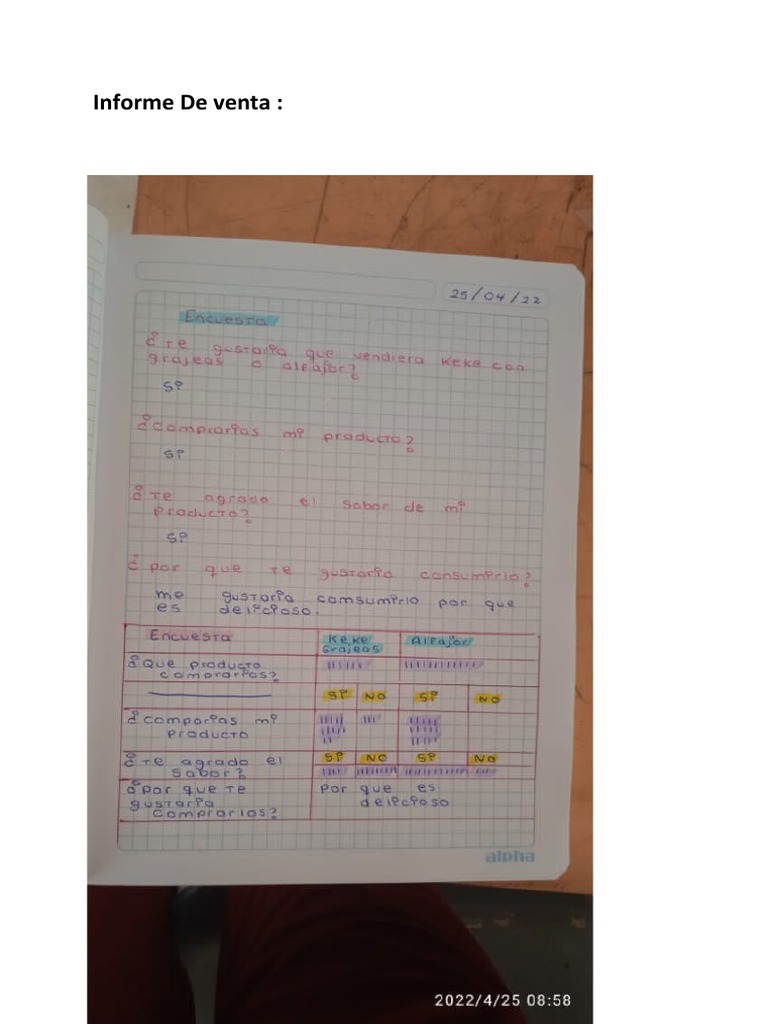 Informe De venta :
25/04/22
Encuesta
¿Te gustaria que vendiera Keke con
grajeas o alfajor?
Si
¿comprarias mi producto?
Si
¿Te agrado el sabor de mi
producto?
Si
¿por que te gustaria consumirlo?
me gustaria comsumirlo por que
es delicioso.
Encuesta Keke Grajeas Alfajor
¿Que producto
comprarias?
Si NO Si NO
¿comporias mi
producto
¿Te agrado el
sabor? Si NO Si NO
¿por que te
gustaria
comprarlos? Por que es
delicioso
alpha
2022/4/25 08:58